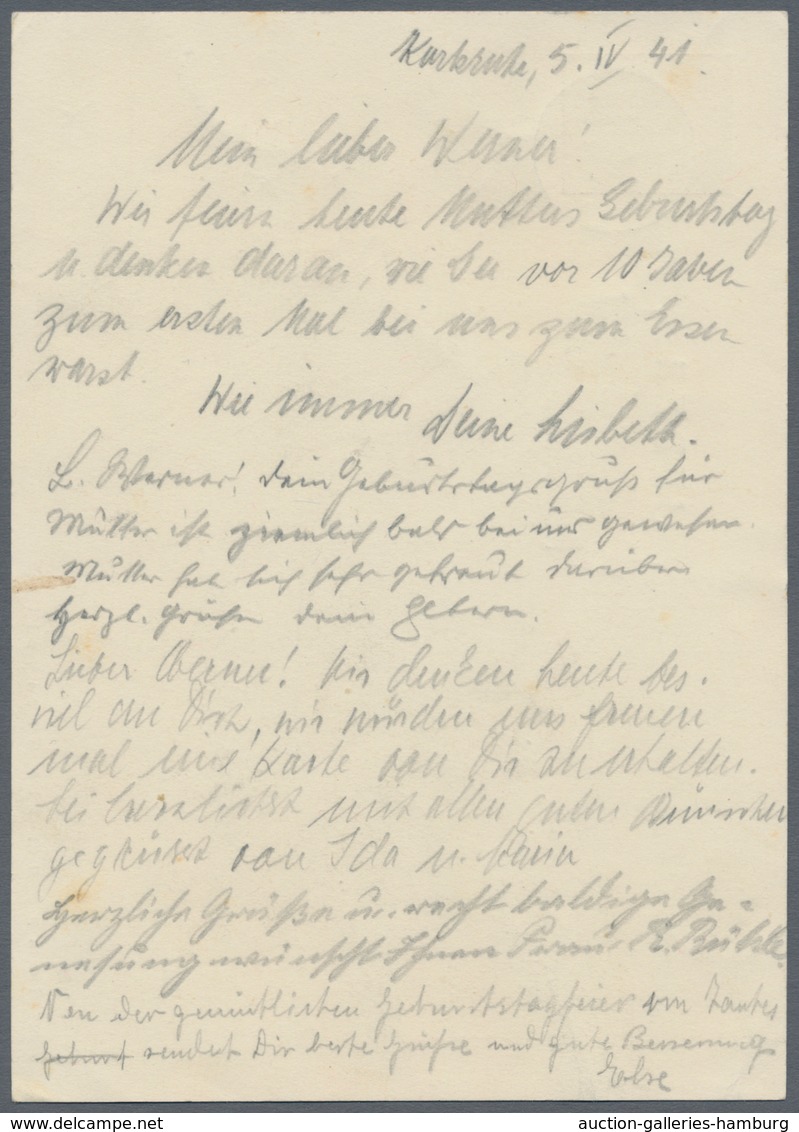 Karlsruhe, 5. IV 41.
Mein lieber Werner!
Wir feiern heute Mutters Geburtstag
u. denken daran, wie Du vor 10 Jahren
zum ersten Mal bei uns zum Essen
warst.
Wie immer Deine Lisbeth.
L. Werner! Dein Geburtstagsgruß für
Mutter ist ziemlich bald bei uns gewesen.
Mutter hat sich sehr gefreut darüber
Herzl. Grüße Dein
Lieber Werner! Wir denken heute bes.
viel an Dich, wir würden uns freuen
mal eine Karte von Dir zu erhalten.
Sei herzlichst mit allen guten Wünschen
gegrüsst von Ida u.
Herzliche Grüße u. recht baldige Ge-
nesung wünscht Ihnen Frau
Von der gemütlichen Geburtstagsfeier von Tantes
Geburt sendet Dir beste Grüße und gute Besserung
Else
auction-galleries-hamburg